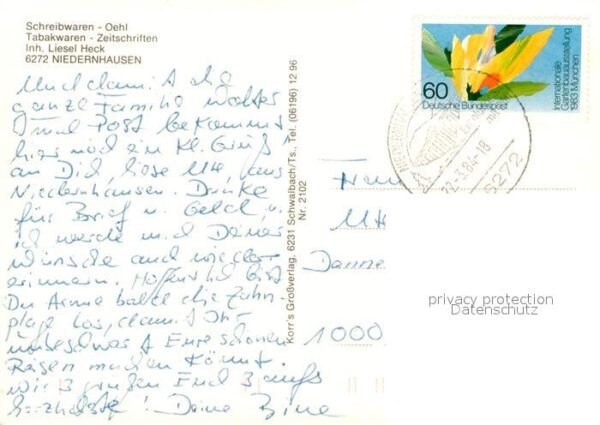 Schreibwaren - Oehl
Tabakwaren - Zeitschriften
Inh. Liesel Heck
6272 NIEDERNHAUSEN
Und damit die
ganze Familie Walter
mal Post bekommt
hier noch ein Kl. Gruß
an Dich, liebe Ute, aus
Niedernhausen. Danke
für Brief u. Geld, u.
ich werde mich Deiner
Wünsche auch wieder
erinnern. Hoffentlich bist
Du Arme bald die Zahn-
plage los, damit Ihr
unbeschwert Eure schönen
Reisen machen könnt.
Wir 3 grüßen Euch 3 aufs
herzlichste! Deine Bine
Korr's Großverlag, 6231 Schwalbach/Ts., Tel. (06196) 12 96
Nr. 2102
60
Deutsche Bundespost
Internationale
Gartenbauausstellung
1983 München
22.-3.84-18
6272
Frau
Ute
Danne
1000
privacy protection
Datenschutz